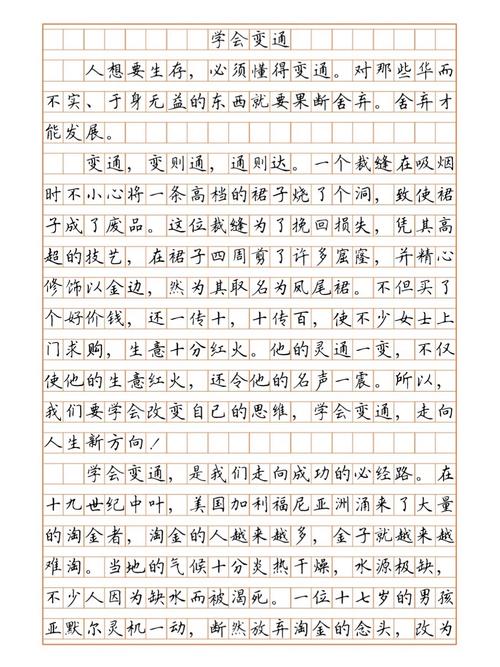 学会变通
人想要生存，必须懂得变通。对那些华而
不实、于身无益的东西就要果断舍弃。舍弃才
能发展。
变通，变则通，通则达。一个裁缝在吸烟
时不小心将一条高档的裙子烧了个洞，致使裙
子成了废品。这位裁缝为了挽回损失，凭其高
超的技艺，在裙子四周剪了许多窟窿，并精心
修饰以金边，然为其取名为凤尾裙。不但买了
个好价钱，还一传十，十传百，使不少女士上
门求购，生意十分红火。他的灵通一变，不仅
使他的生意红火，还令他的名声一震。所以，
我们要学会改变自己的思维，学会变通，走向
人生新方向！
学会变通，是我们走向成功的必经路。在
十九世纪中叶，美国加利福尼亚洲涌来了大量
的淘金者，淘金的人越来越多，金子就越来越
难淘。当地的气候十分炎热干燥，水源极缺，
不少人因为缺水而被渴死。一位十七岁的男孩
亚默尔灵机一动，断然放弃淘金的念头，改为